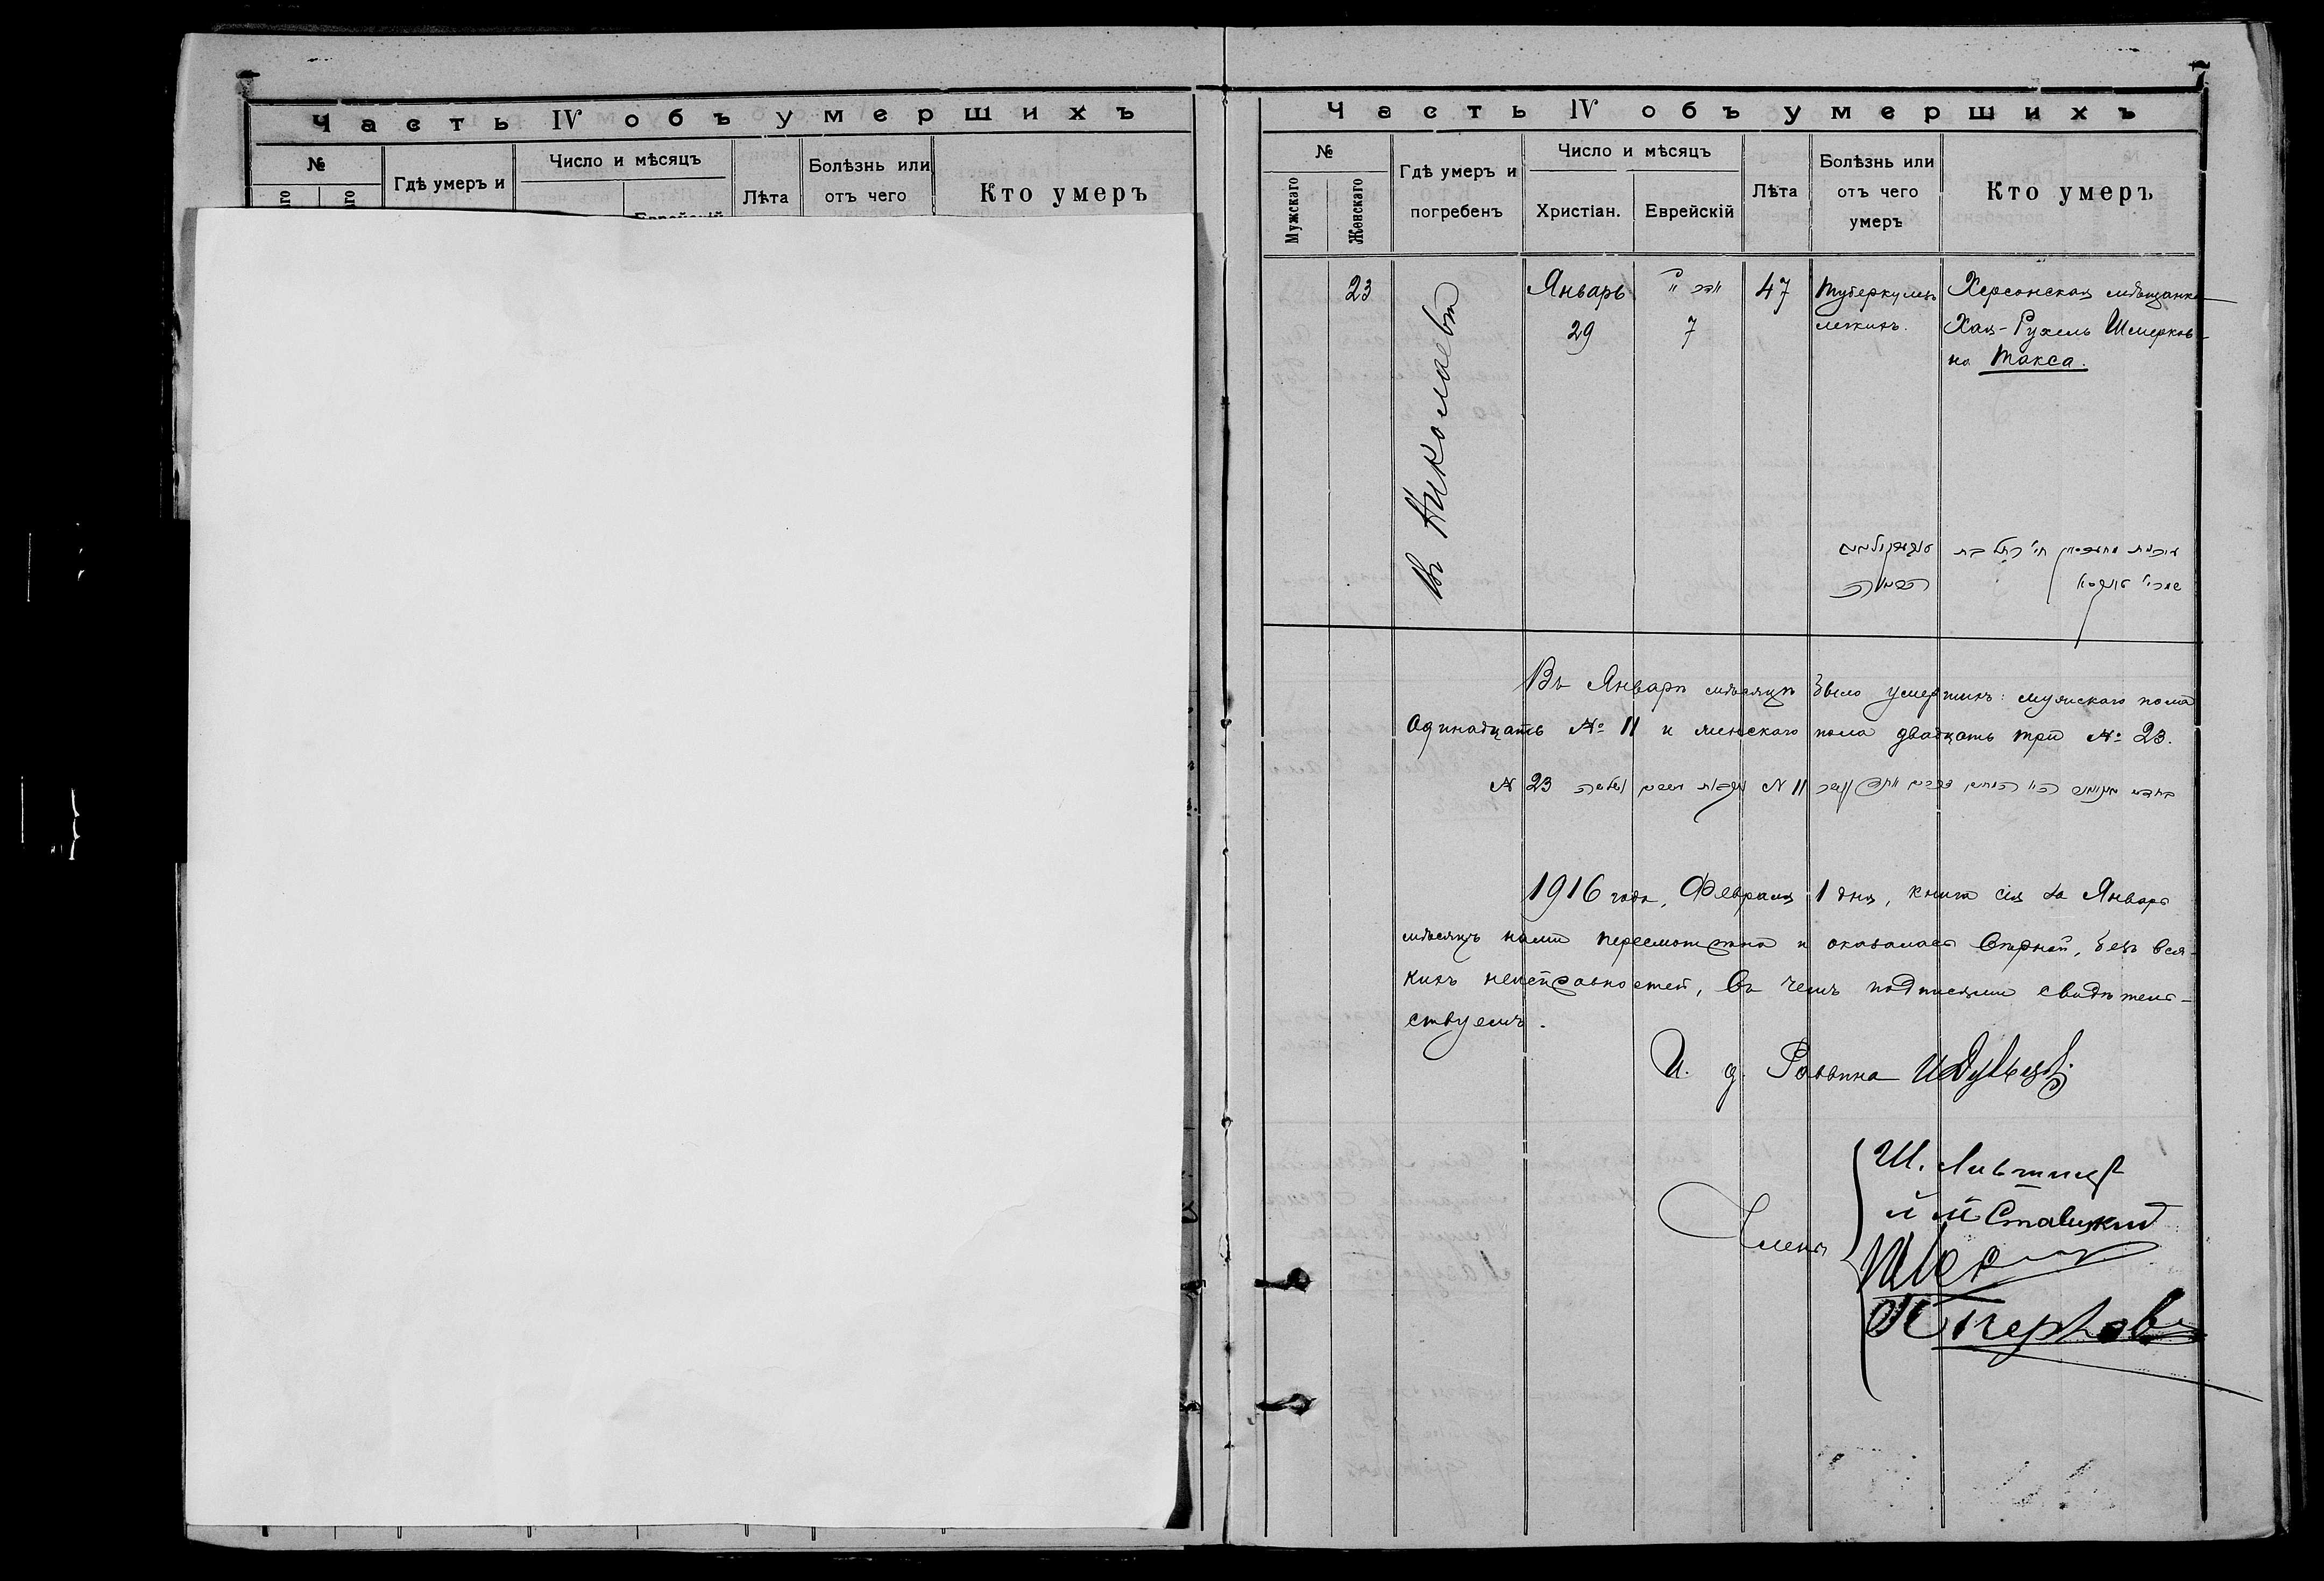 Часть IV объ умершихъ
№
Гдѣ умеръ и
Число и мѣсяцъ
Лѣта
Болѣзнь или
отъ чего
Кто умеръ
7
Часть IV объ умершихъ
№
Мужскаго
Женскаго
Гдѣ умеръ и
погребенъ
Число и мѣсяцъ
Христіан.
Еврейскій
Лѣта
Болѣзнь или
отъ чего
умеръ
Кто умеръ
23
въ Николаевѣ
Январь
29
7
47
Туберкулезъ
легкихъ.
Херсонская мѣщанка
Хая-Рухель Шмерков-
на Такса.
Въ Январѣ мѣсяцѣ было умершихъ: мужскаго пола
Одинадцать № 11 и женскаго пола двадцать три № 23.
№ 11
№ 23
1916 года, Февраля 1 дня, книга сія за Январь
мѣсяцъ нами пересмотрѣна и оказалась вѣрной, безъ вся-
кихъ неисправностей, въ чемъ подписями свидѣтель-
ствуемъ.
И. д. Раввина
Члены
Ш.
Ставицкий